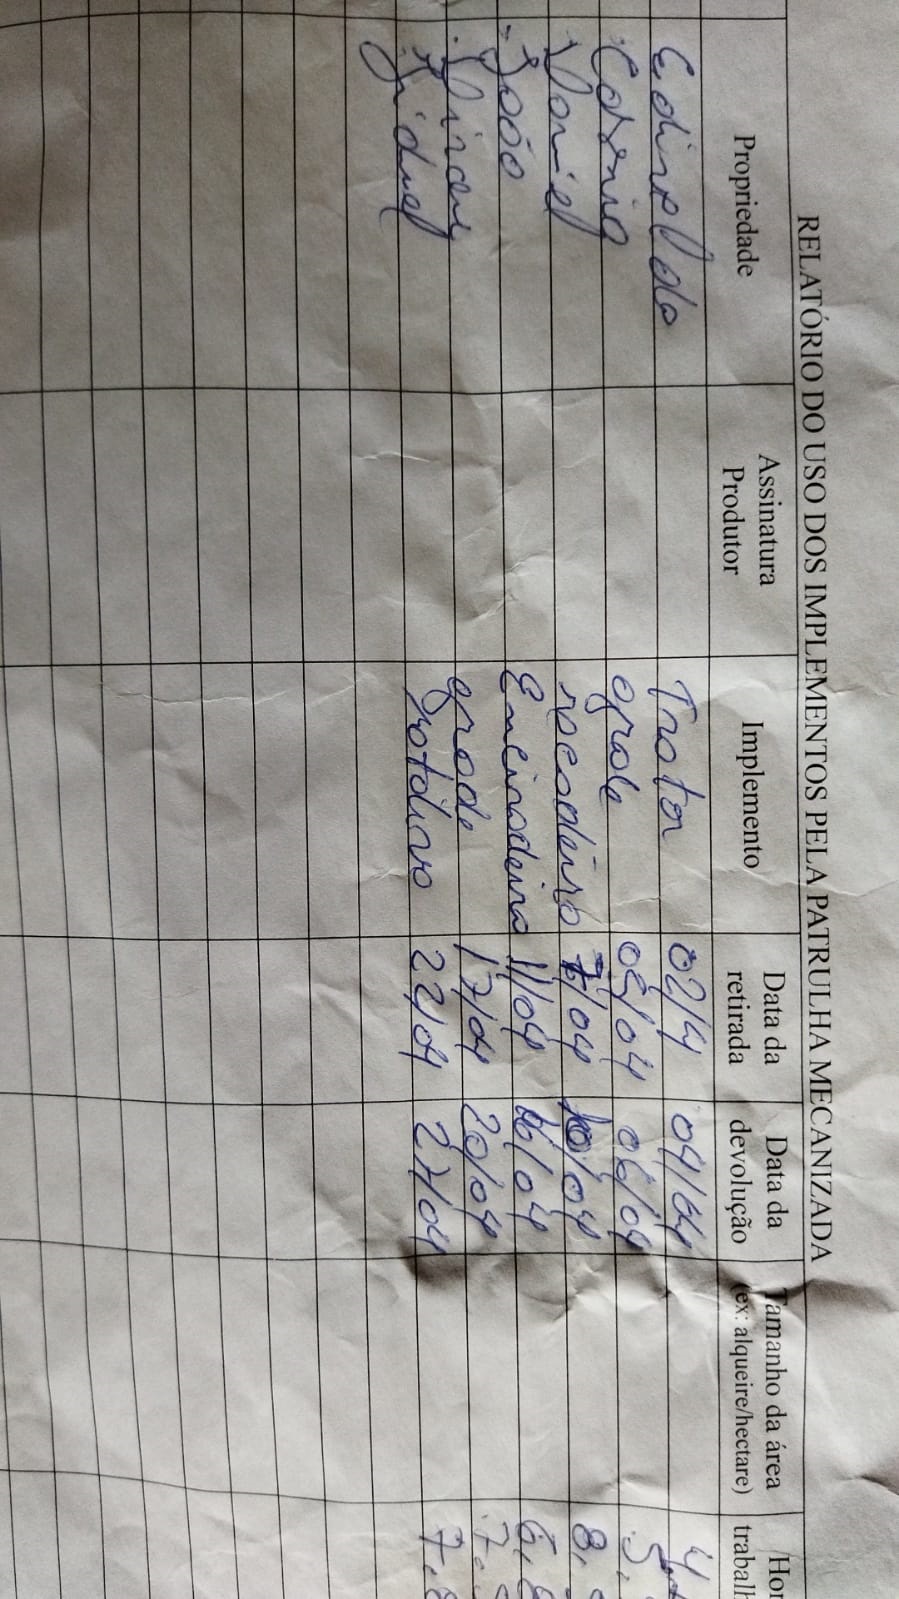 RELATÓRIO DO USO DOS IMPLEMENTOS PELA PATRULHA MECANIZADA
Propriedade Assinatura Produtor Implemento Data da retirada Data da devolução Tamanho da área (ex: alqueire/hectare) Hor trabalh
Edinaldo Trator 02/4 04/04
grade 05/04 06/04
Daniel rocadeira 7/04 10/04 8,
João 11/04 16/04 6,8
grade 17/04 20/04 7,
22/04 27/04 7,8